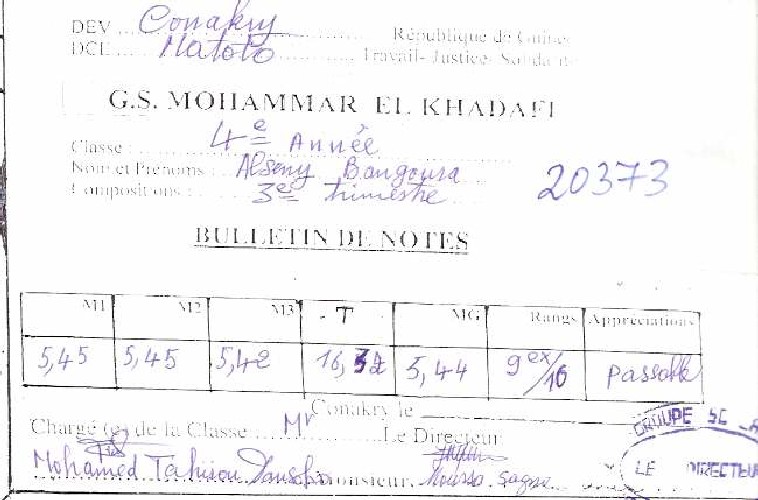 DEV Conakry République de Guinée
DCE Matoto Travail-Justice-Solidarité
G.S. MOHAMMAR EL KHADAFI
Classe : 4e Année
Nom et Prénoms : Alseny Bangoura
Compositions : 3e trimestre 20373
BULLETIN DE NOTES
M1 M2 M3 T MG Rangs Appréciations
5,45 5,45 5,42 16,32 5,44 9ex/16 passable
Conakry le
Chargé (e) de la Classe : Mr Le Directeur
GROUPE SC
Mohamed Tahirou monsieur, LE DIRECTEUR